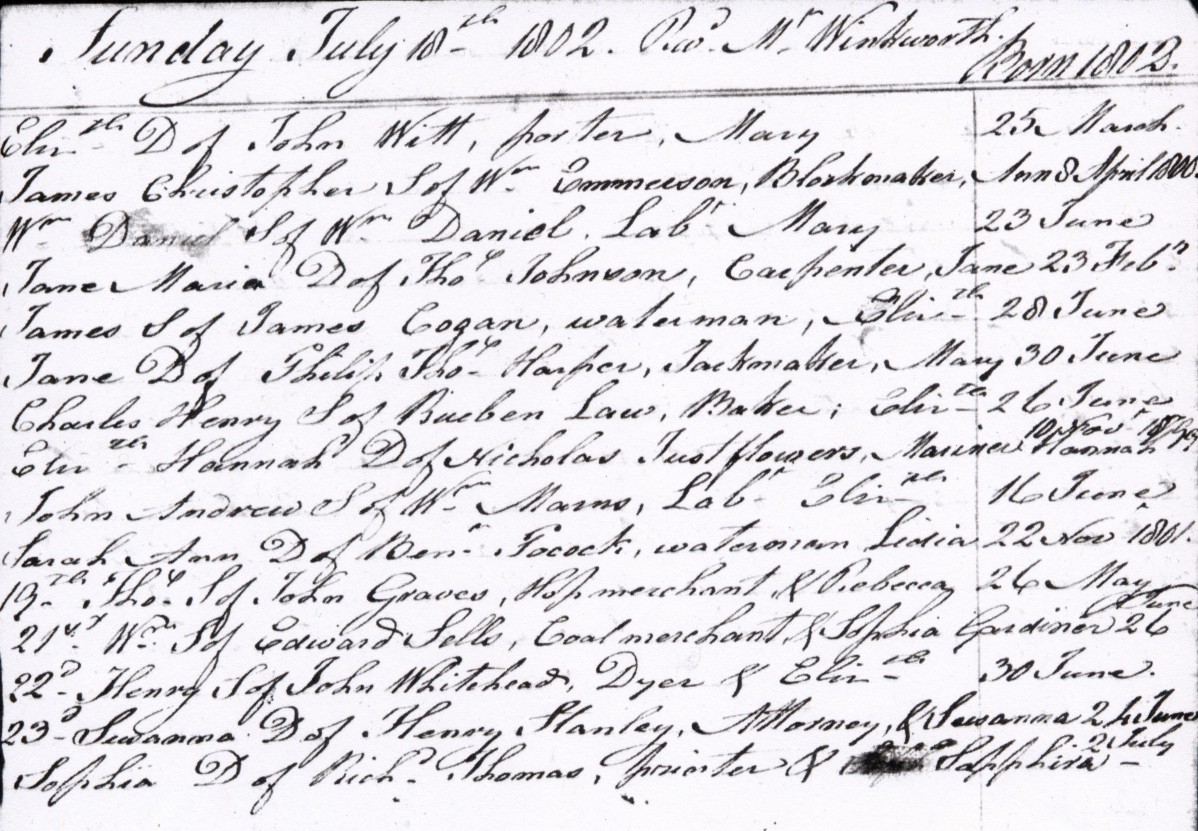 Sunday July 18th 1802. Revd. Mr Winkworth. Born 1802.
Elizth D of John Witt, porter, Mary 25 March.
James Christopher S of Wm Emmerson, Blockmaker, Ann 8 April 1800.
Wm Daniel S of Wm Daniel. Labr Mary 23 June
Jane Maria D of Thos Johnson, Carpenter, Jane 23 Feby
James S of James Cogan, waterman, Elizth 28 June
Jane D of Philip Thos Harper, Jackmaker, Mary 30 June
Charles Henry S of Rueben Law, Baker; Elizth 26 June
Elizth Hannah D of Nicholas Justflowers, Mariner Hannah 10 Novr
John Andrew S of Wm Marns, Labr Elizth 16 June
Sarah Ann D of Benn Pocock, waterman Lidia 22 Novr 1801.
19th Thos S of John Graves, Hopmerchant, & Rebecca 26 May
21st Wm S of Edward Sells, Coalmerchant & Sophia Gardiner 26 June
22d Henry S of John Whitehead, Dyer & Elizth 30 June.
23d Suwanna D of Henry Stanley, Attorney, & Suwanna 24 June
Sophia D of Richd Thomas, printer & Sapphira 2 July